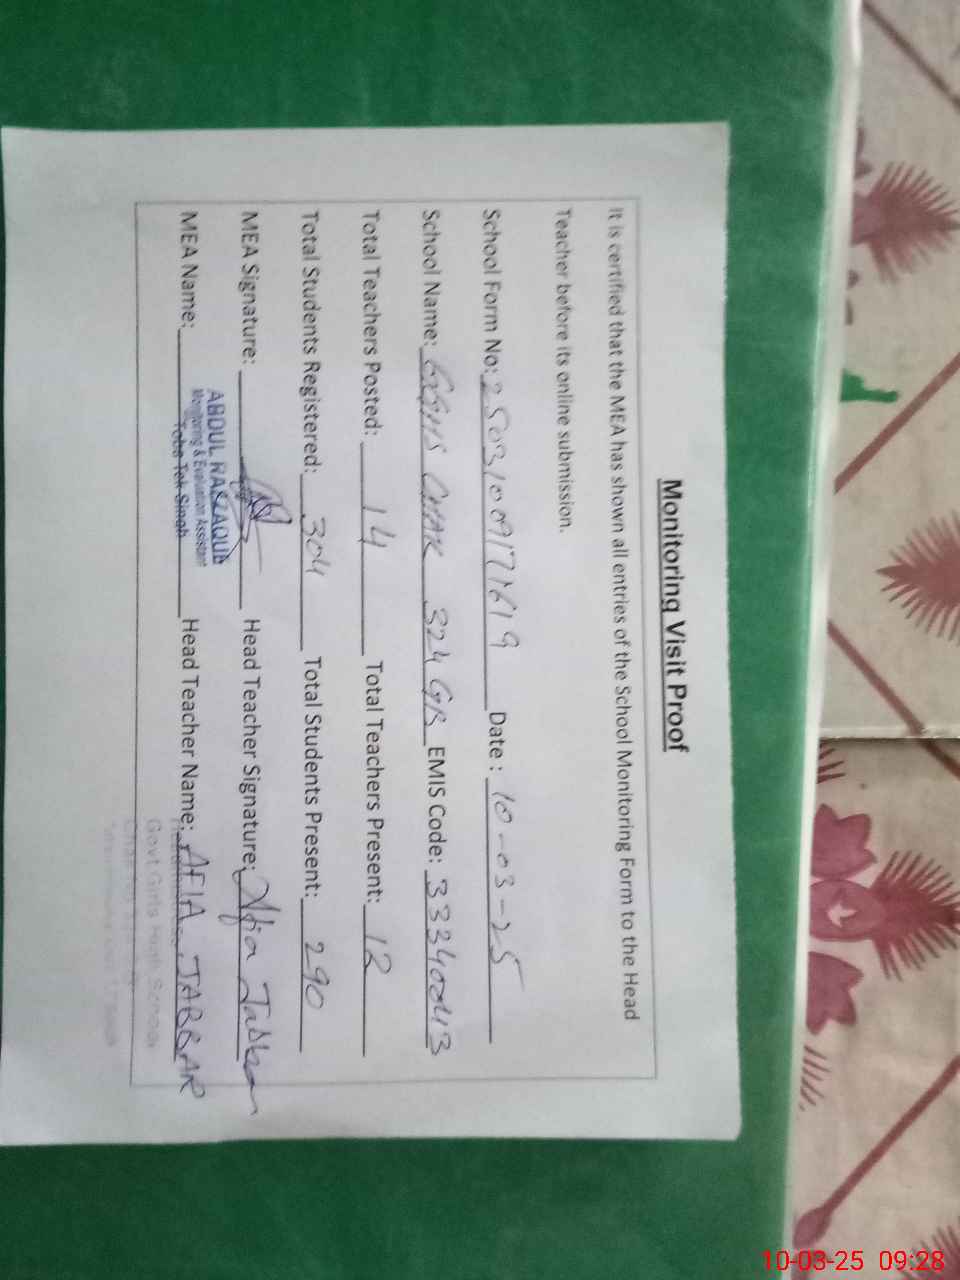 Monitoring Visit Proof
It is certified that the MEA has shown all entries of the School Monitoring Form to the Head
Teacher before its online submission.
School Form No: Date : 10-03-25
School Name: GGHS CHAK 324 GB EMIS Code: 33340043
Total Teachers Posted: 14 Total Teachers Present: 12
Total Students Registered: 304 Total Students Present: 290
MEA Signature: Head Teacher Signature: Afia Jabbar
MEA Name: ABDUL RAZZAQUE Head Teacher Name: AFIA JABBAR
Monitoring & Evaluation Assistant
Toba Tek Singh
Govt Girls High School
10-03-25 09:28